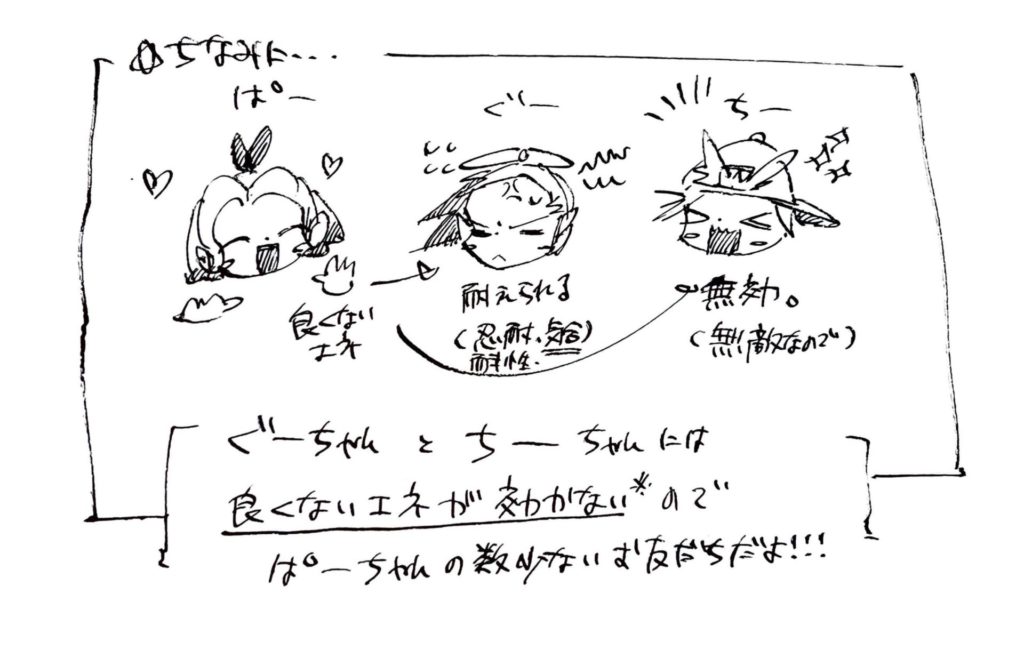 ちなみに...
ぱー
ぐー
ちー
良くない
エネ
耐えられる
(忍耐、気合)
耐性.
無効。
(無敵なので)
ぐーちゃん と ちーちゃんには
良くないエネが効かない※ので
ぱーちゃんの数少ないお友だちだよ!!!